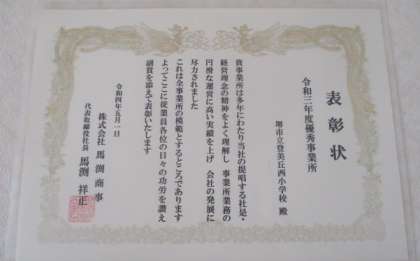 表彰状
令和三年度優秀事業所
堺市立登美丘西小学校 殿
貴事業所は多年にわたり当社の提唱する社是・
経営理念の精神をよく理解し 事業所業務の
円滑な運営に高い実績を上げ 会社の発展に
尽力されました
これは全事業所の模範とするところであります
よってここに従業員各位の日々の功労を讃え
副賞を添えて表彰いたします
令和四年五月一日
株式会社 馬渕商事
代表取締役社長 馬渕祥正